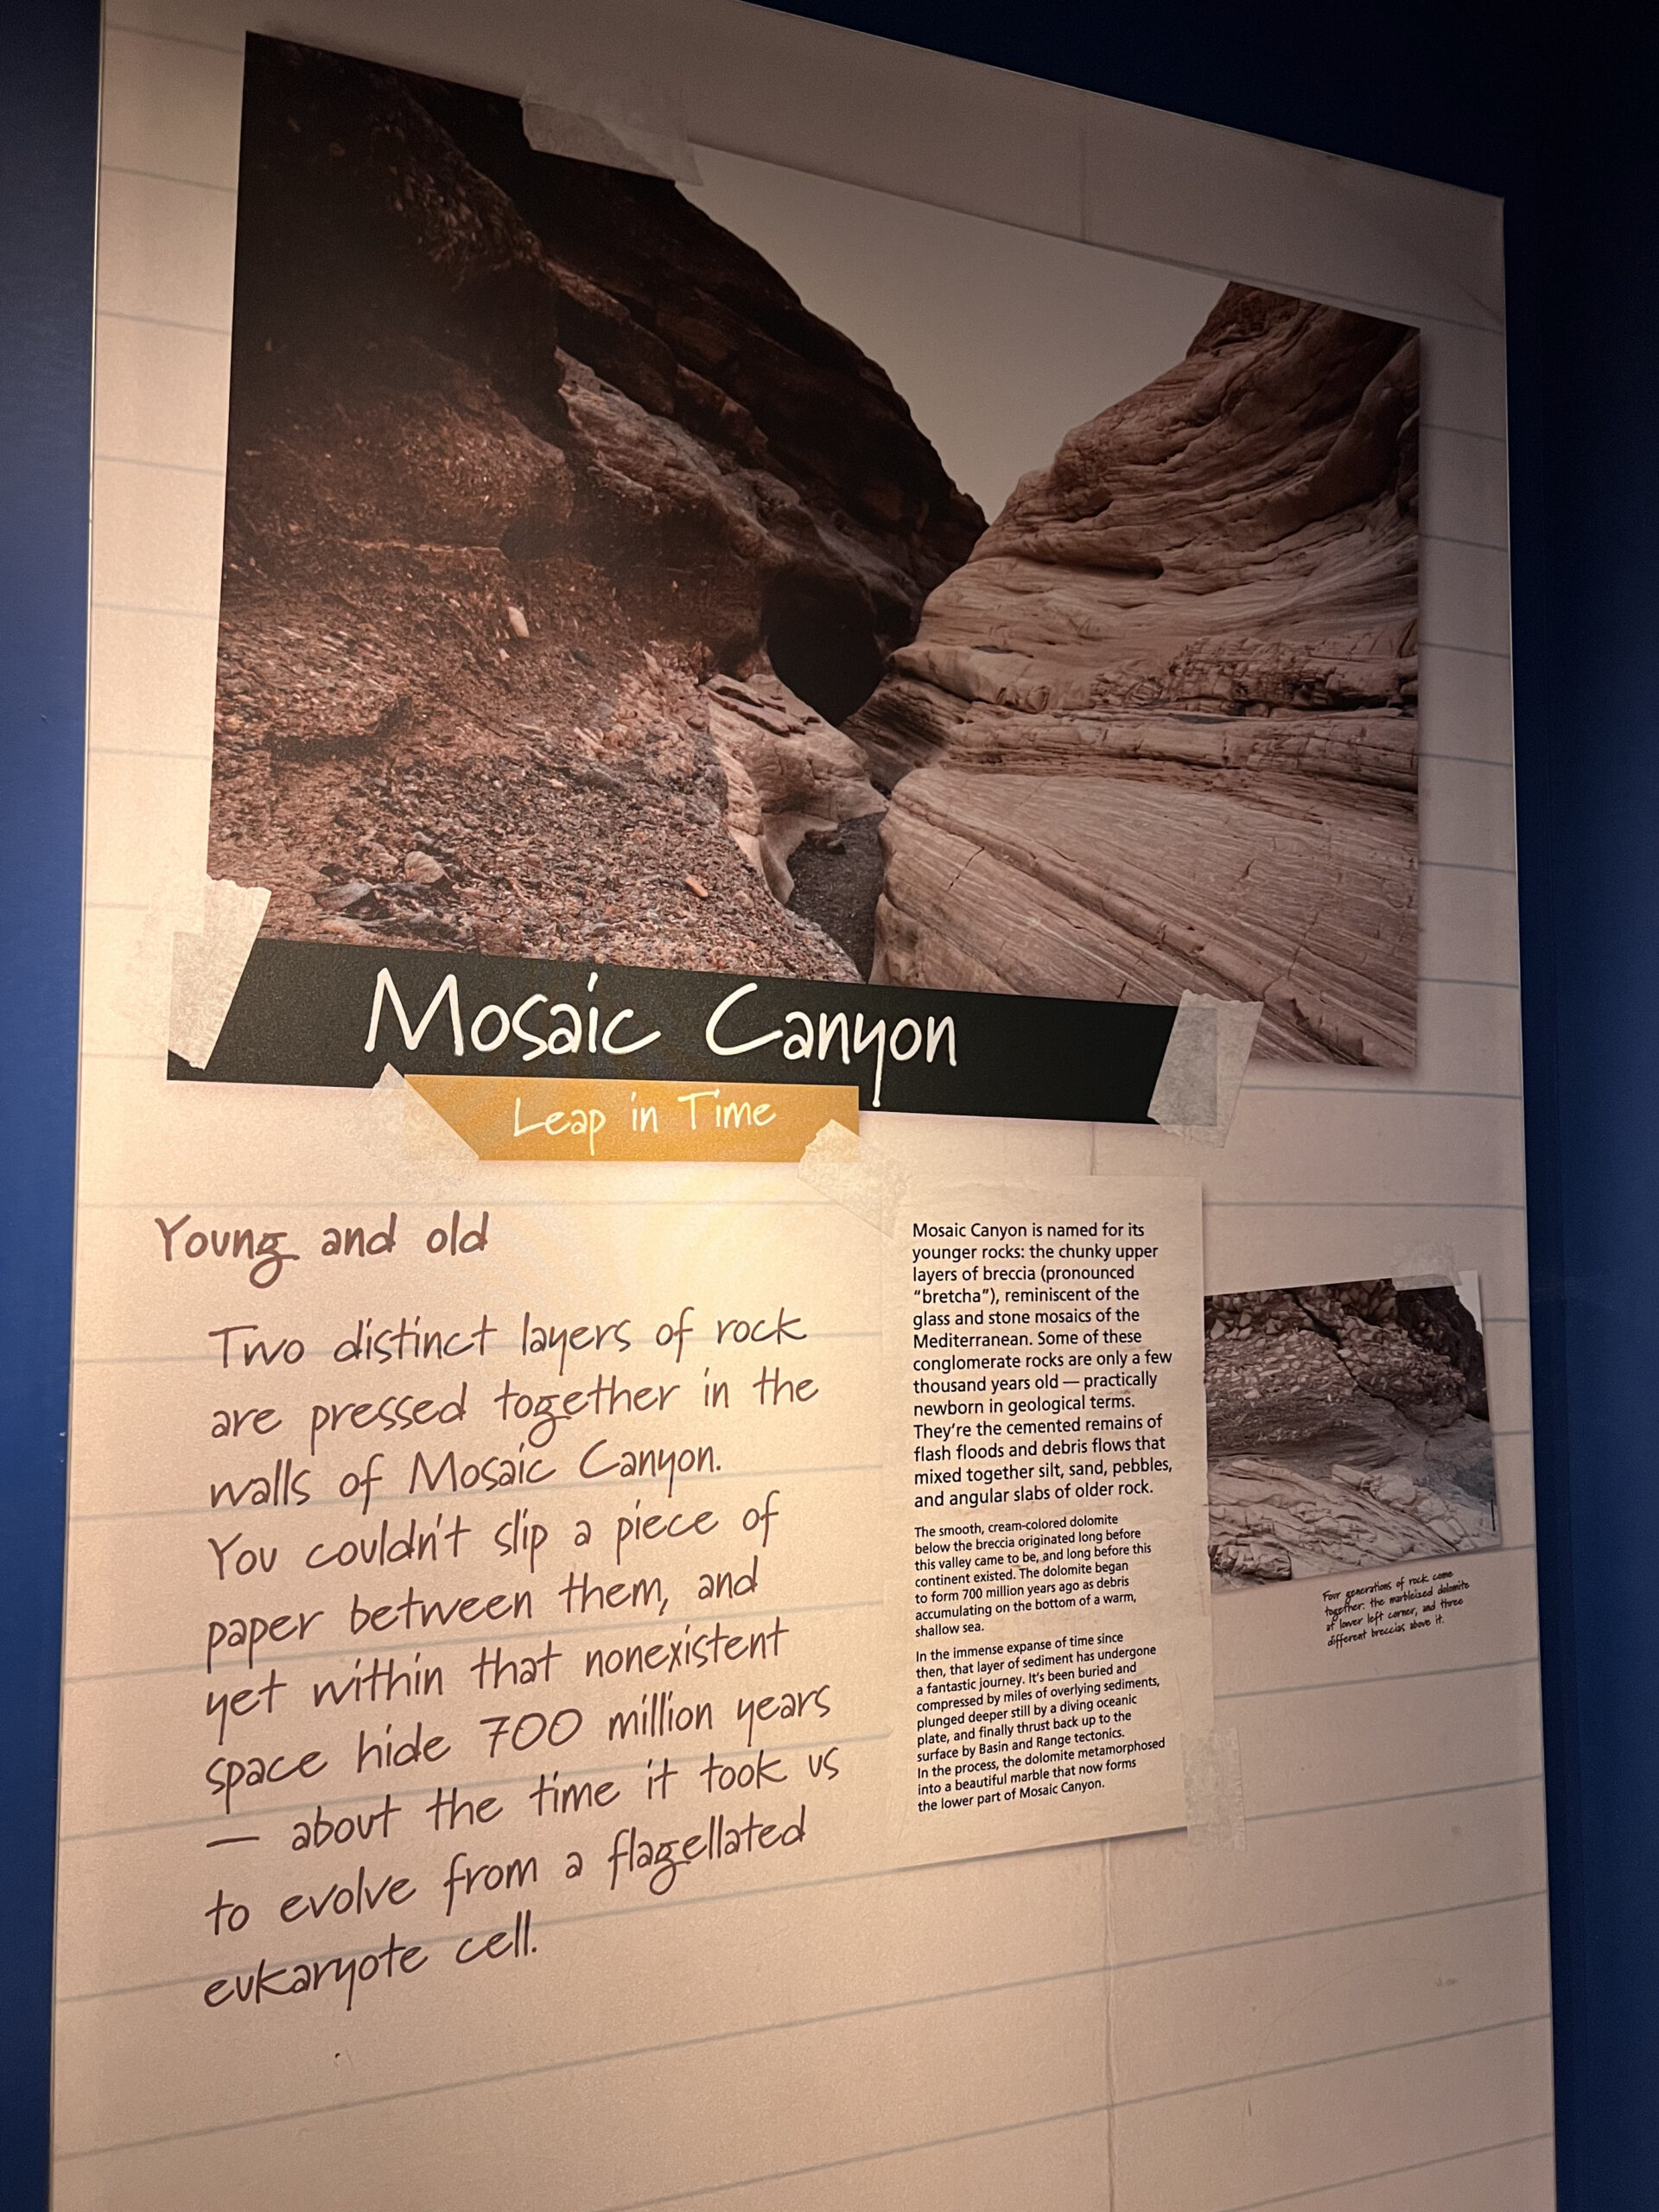 Mosaic Canyon
Leap in Time
Young and old
Two distinct layers of rock
are pressed together in the
walls of Mosaic Canyon.
You couldn't slip a piece of
paper between them, and
yet within that nonexistent
space hide 700 million years
— about the time it took us
to evolve from a flagellated
eukaryote cell.
Mosaic Canyon is named for its
younger rocks: the chunky upper
layers of breccia (pronounced
“bretcha”), reminiscent of the
glass and stone mosaics of the
Mediterranean. Some of these
conglomerate rocks are only a few
thousand years old — practically
newborn in geological terms.
They're the cemented remains of
flash floods and debris flows that
mixed together silt, sand, pebbles,
and angular slabs of older rock.
The smooth, cream-colored dolomite
below the breccia originated long before
this valley came to be, and long before this
continent existed. The dolomite began
to form 700 million years ago as debris
accumulating on the bottom of a warm,
shallow sea.
In the immense expanse of time since
then, that layer of sediment has undergone
a fantastic journey. It's been buried and
compressed by miles of overlying sediments,
plunged deeper still by a diving oceanic
plate, and finally thrust back up to the
surface by Basin and Range tectonics.
In the process, the dolomite metamorphosed
into a beautiful marble that now forms
the lower part of Mosaic Canyon.
Four generations of rock come
together: the marbleized dolomite
at lower left corner, and three
different breccias above it.